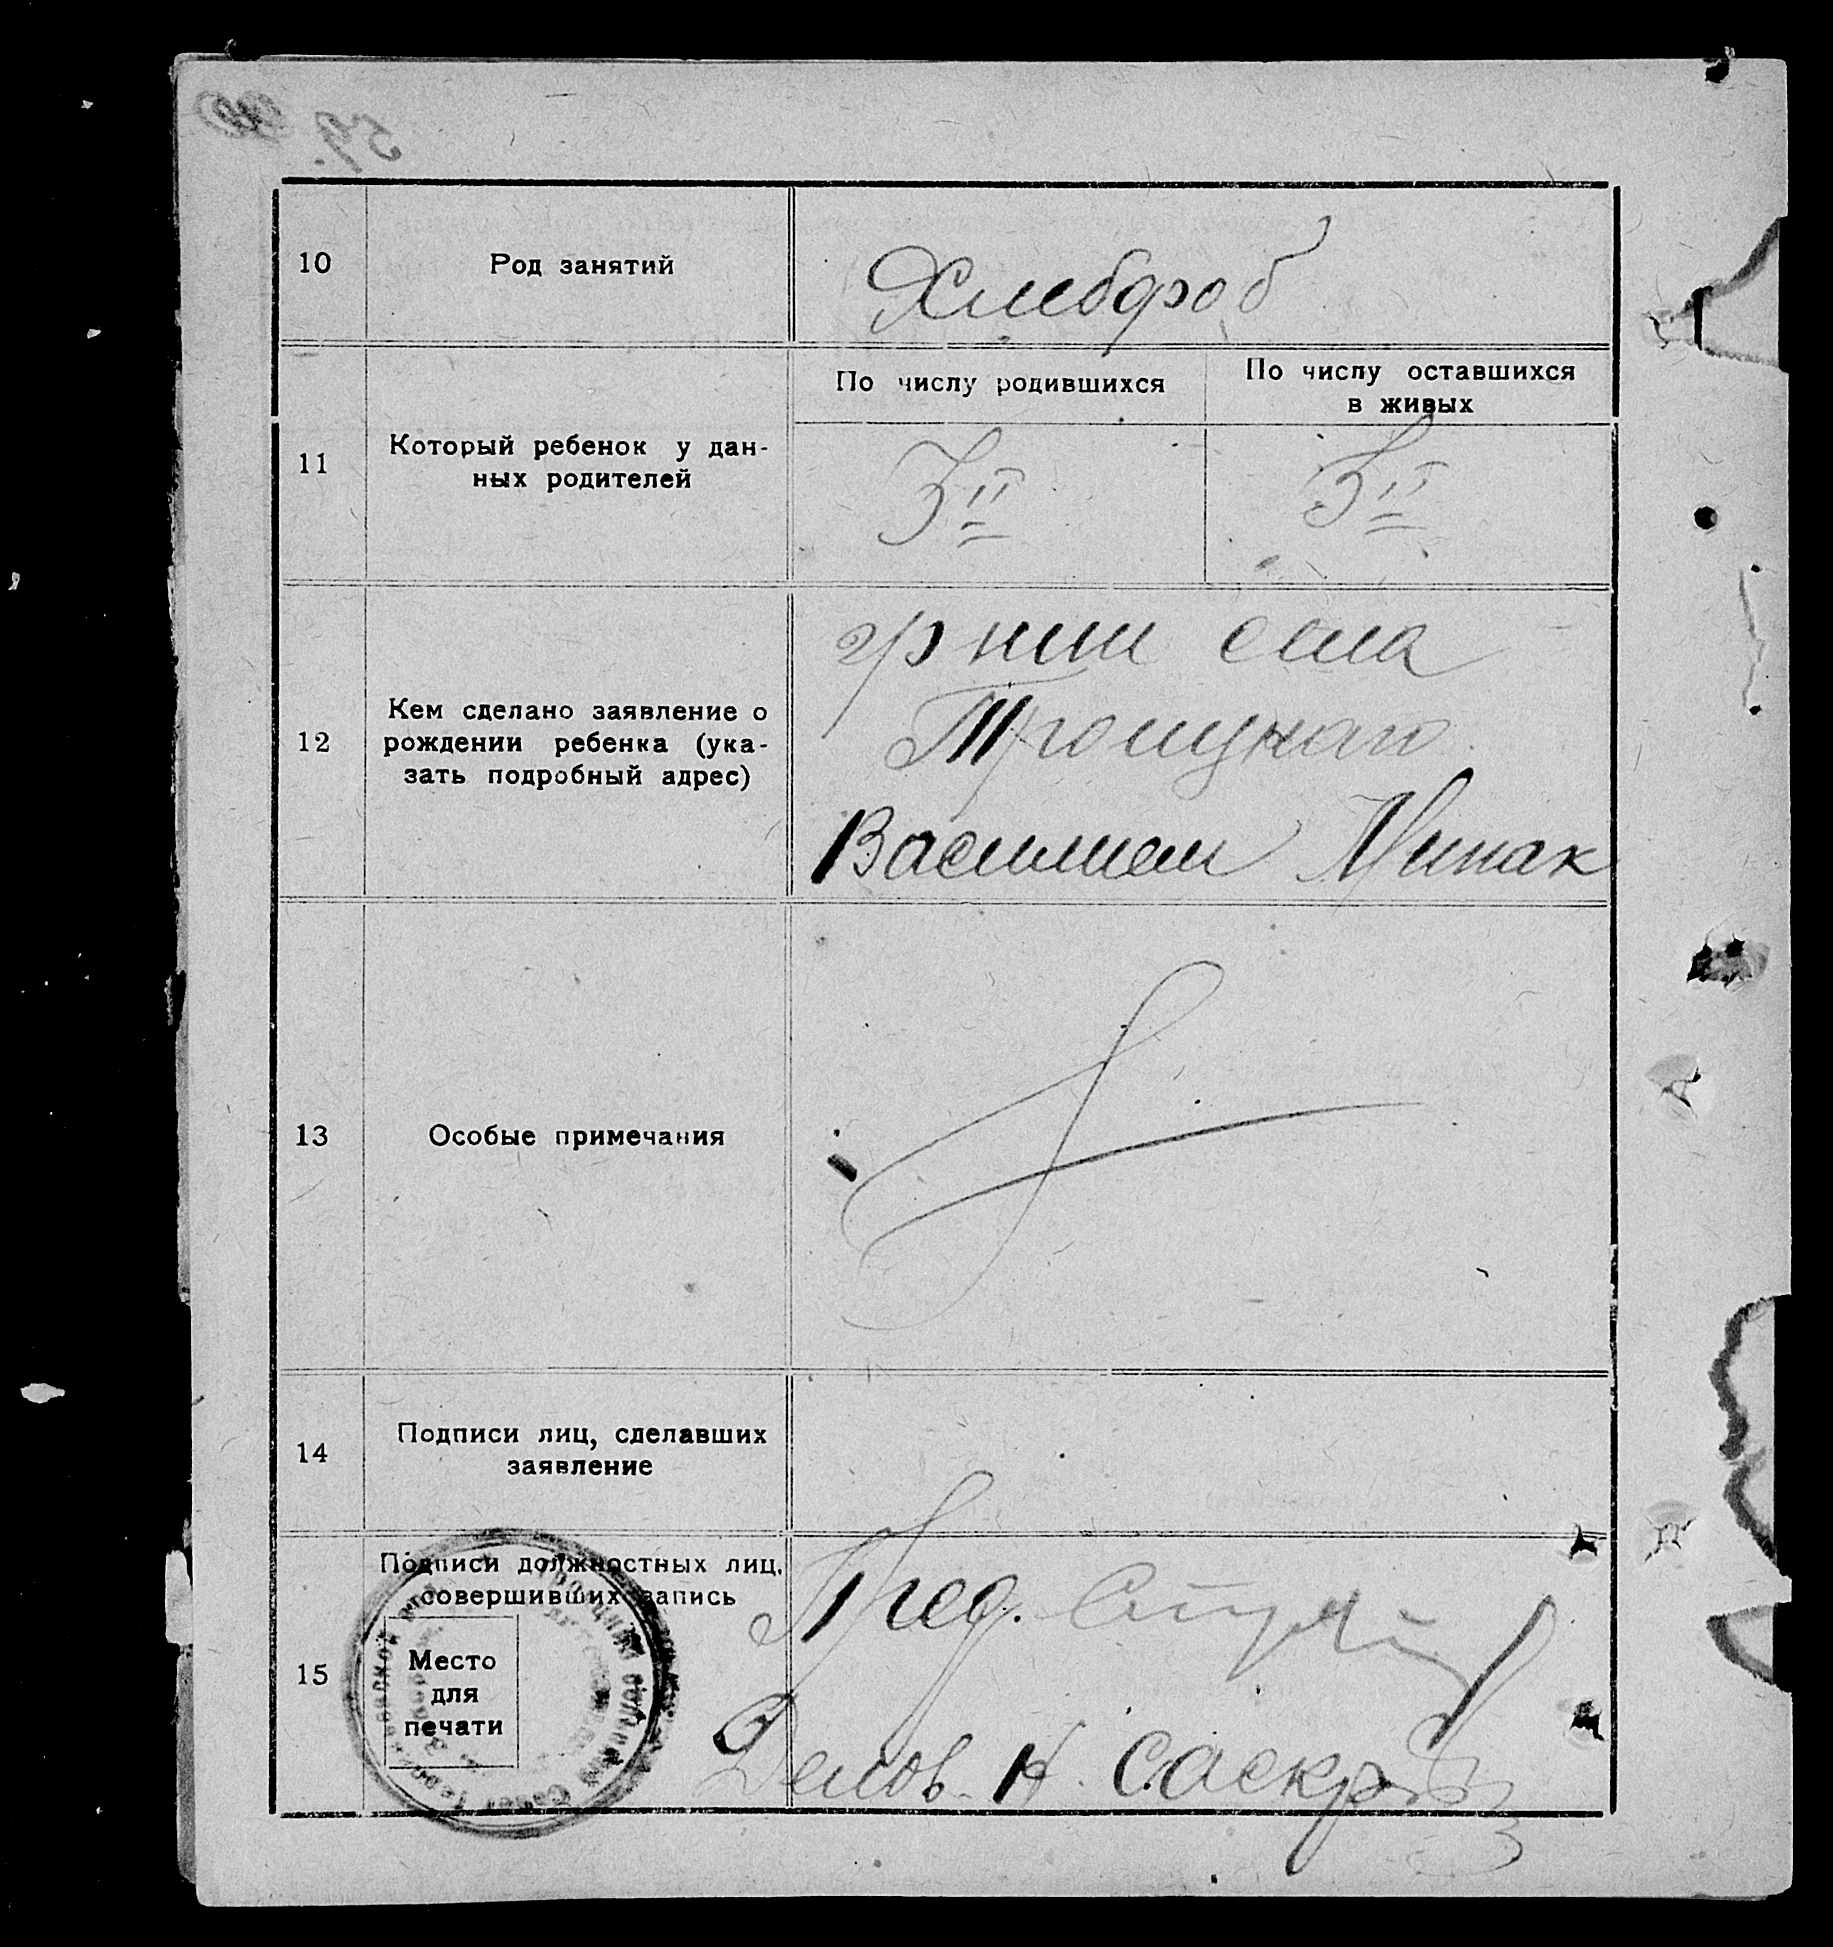 10
Род занятий
Хлебороб
11
Который ребенок у дан-
ных родителей
По числу родившихся
По числу оставшихся
в живых
3й
3й
12
Кем сделано заявление о
рождении ребенка (ука-
зать подробный адрес)
гр нин села
Троицкаго
Василием
13
Особые примечания
14
Подписи лиц, сделавших
заявление
15
Подписи должностных лиц,
совершивших запись
Место
для
печати
Пред.
Делов. Н.